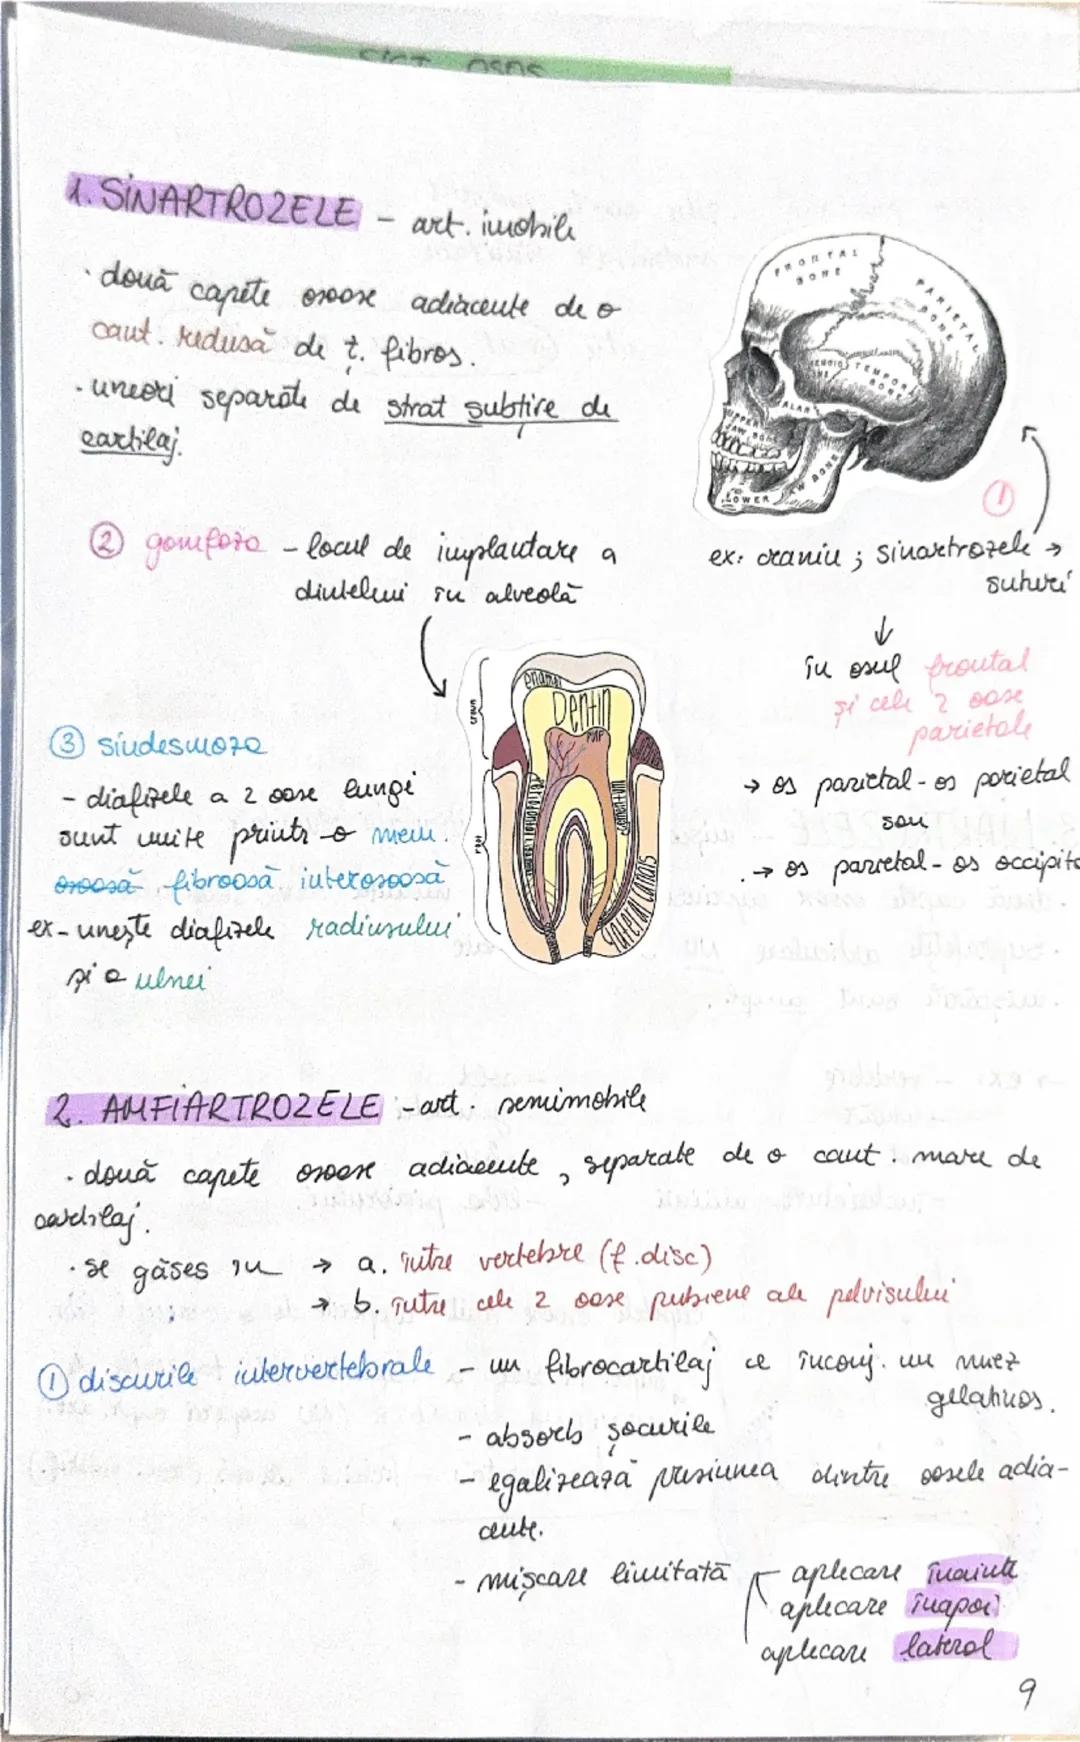 SIST OSOS
1. SINARTROZELE - art. imobile
· două capete osoase adiacente de o
cant. redusă de ț. fibros.
· uneori separate de strat subțire de
cartilaj.
FRONTAL BONE
PARIETAL BONE
TEMPORAL BONE
MALAR
UPPER JAW BONE
LOWER JAW BONE
1
ex: craniu ; sinartrozele →
suturi
↓
în osul frontal
și cele 2 oase
parietale
→ os parietal - os parietal
sau
→ os parietal - os occipita
2 gomfoza - locul de implantare a
dintelui în alveolă
enamel
Dentin
Pulp
crown
root
cementum
lateral canals
3 sindesmoza
- diafizele a 2 oase lungi
sunt unite printr-o mem.
osoasă fibroasă interosoasă
ex - unește diafizele radiusului
și a ulnei
2. AMFIARTROZELE - art. semimobile
· două capete osoase adiacente, separate de o cant. mare de
cartilaj.
· se găses în → a. între vertebre (f. disc)
→ b. între cele 2 oase pubiene ale pelvisului
1 discurile intervertebrale - un fibrocartilaj ce înconj. un miez
gelatinos.
- absorb șocurile
- egalizează presiunea dintre oasele adia-
cente.
- mișcare limitată
aplecare înainte
aplecare înapoi
aplecare lateral
9